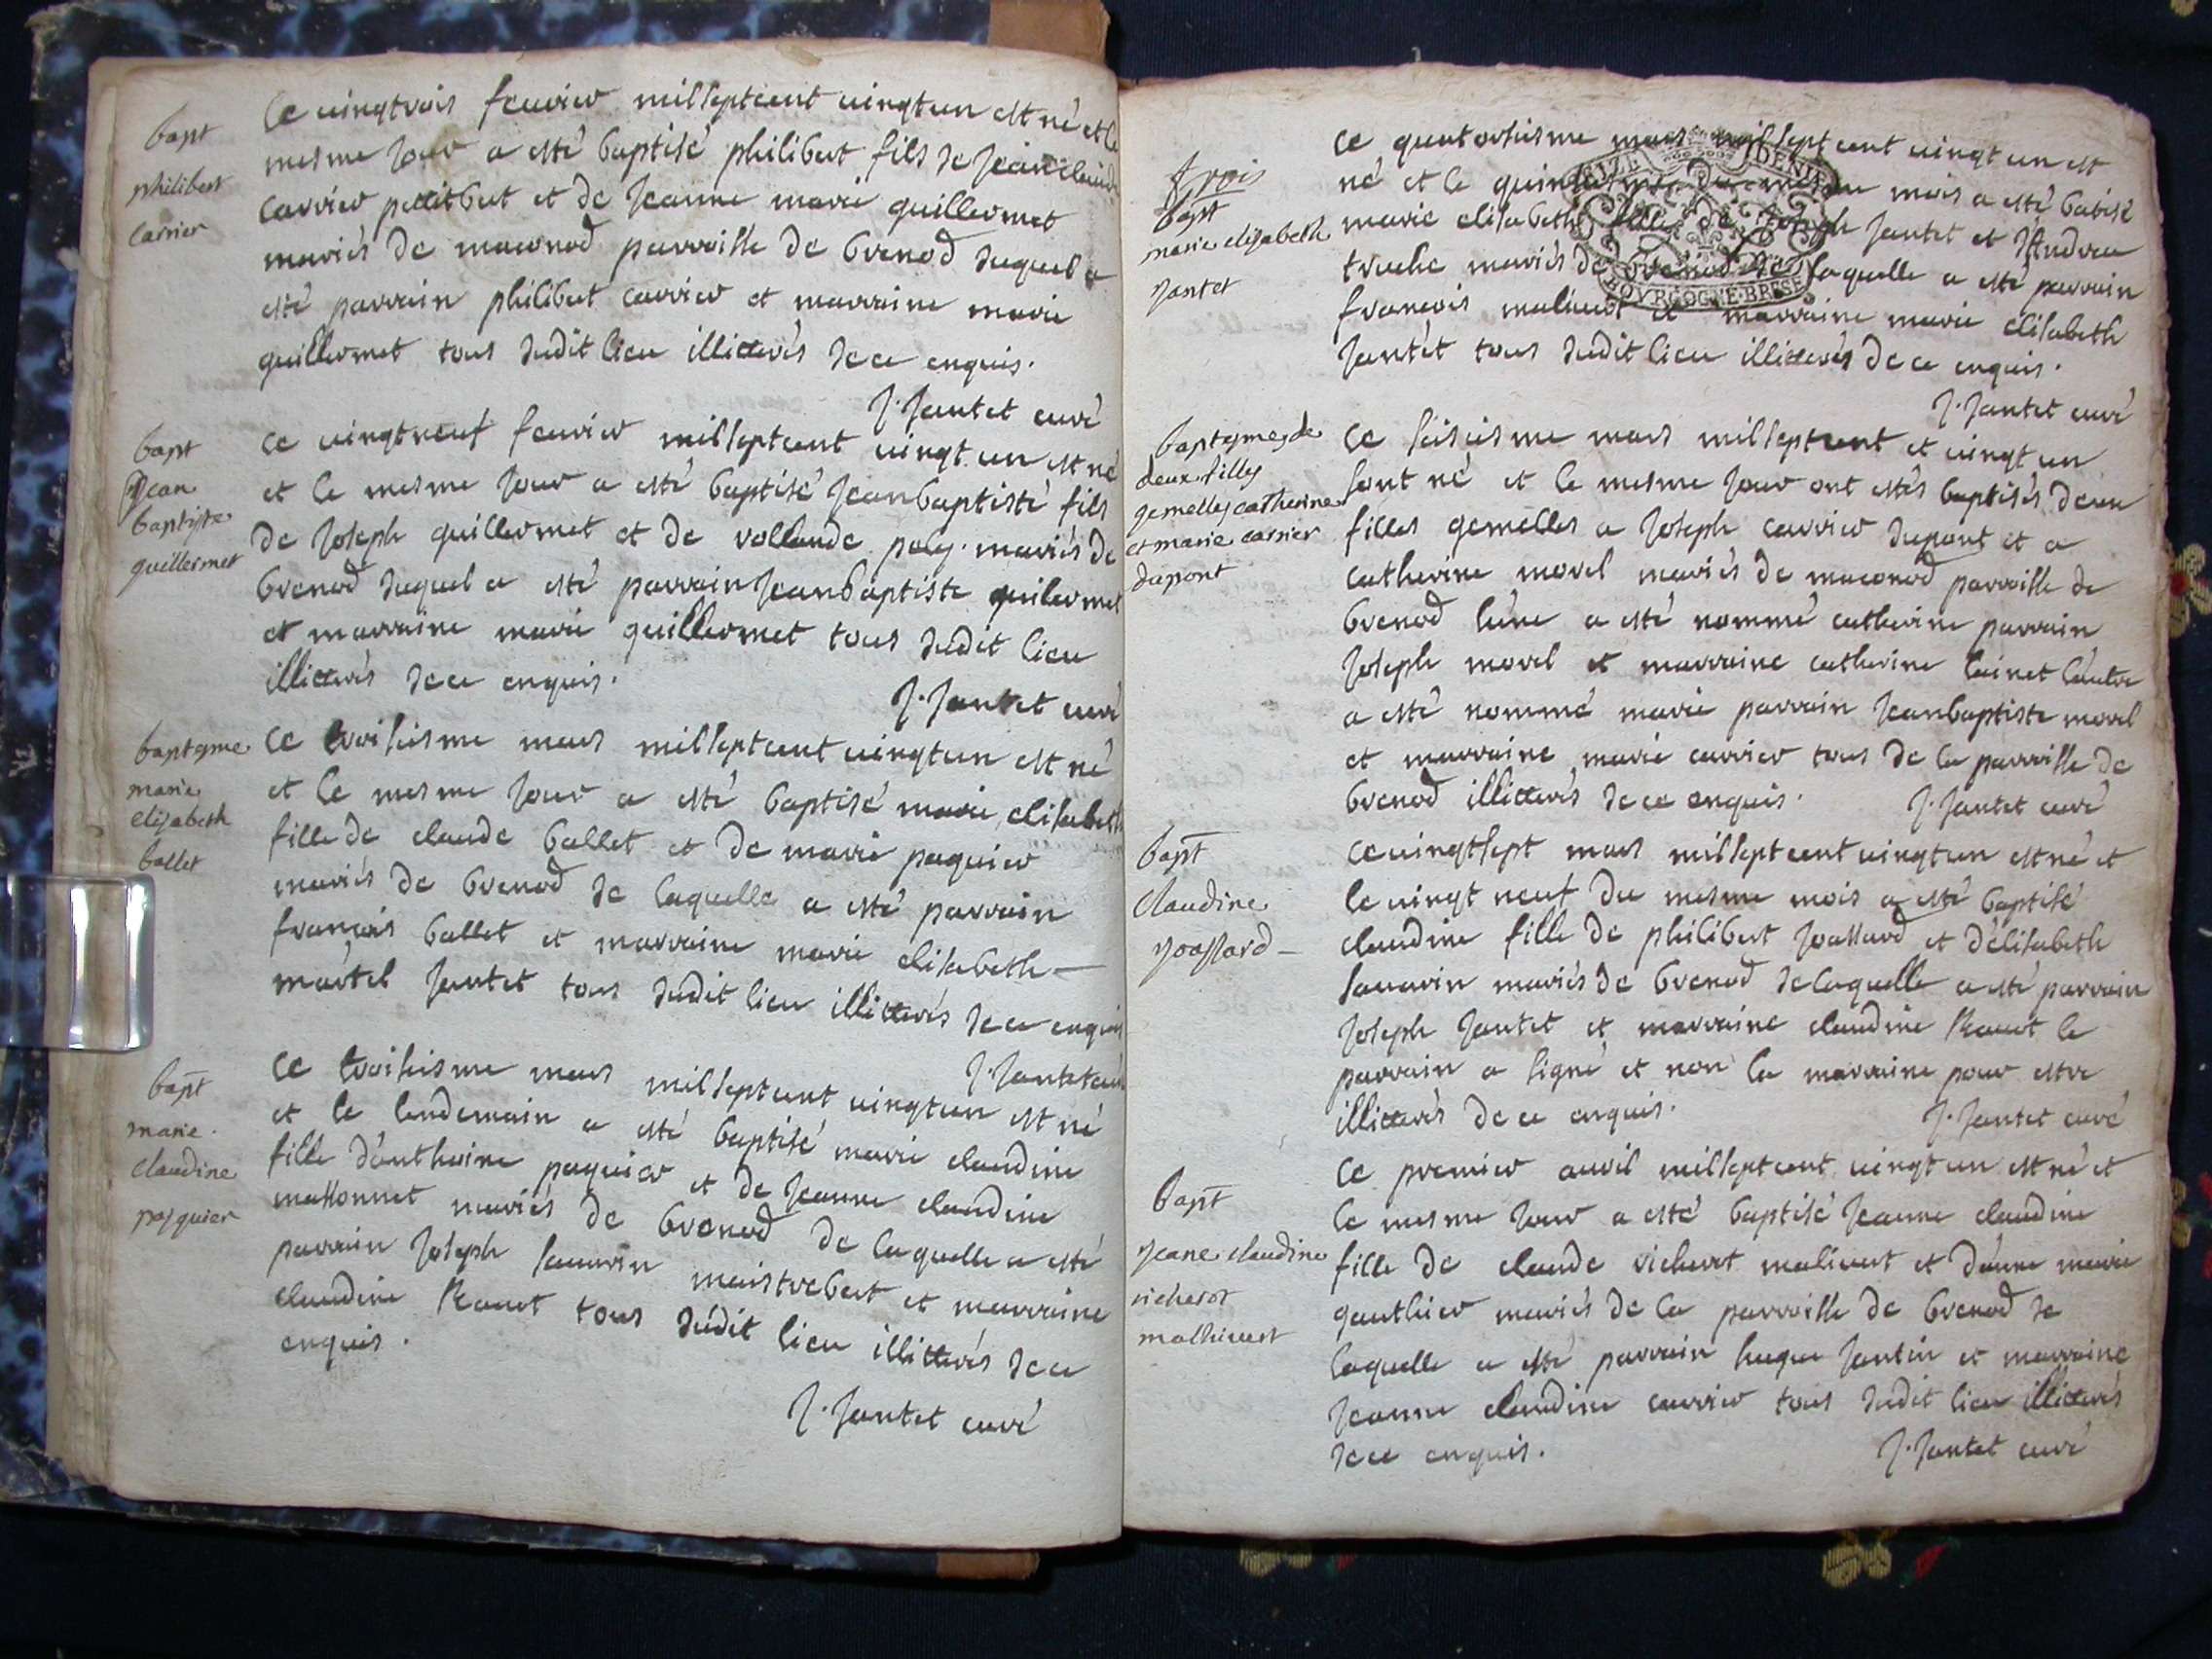 bapt
philibert
carrier
Ce uingtrois feurier millseptcent uingtun est né et le
mesme jour a esté baptisé philibert fils de jeanclaude
carrier petitbert et de jeanne marie guillermet
mariés de maconod parroisse de brenod duquel a
esté parrain philibert carrier et marraine marie
guillermet tous dudit lieu illitterés de ce enquis.
J. Jantet curé
bapt
Jean
baptiste
guillermet
Ce uingtneuf feurier millseptcent uingt un est né
et le mesme jour a esté baptisé jeanbaptiste fils
de joseph guillermet et de vollande poly mariés de
brenod duquel a esté parrain jeanbaptiste guilermet
et marraine marie guillermet tous dudit lieu
illitterés de ce enquis.
J. Jantet curé
baptesme
marie
elisabeth
ballet
Ce troisiesme mars millseptcent uingtun est né
et le mesme jour a esté baptisé marie elisabeth
fille de claude ballet et de marie paquier
mariés de brenod de laquelle a esté parrain
francois ballet et marraine marie elisabeth
martel jantet tous dudit lieu illitterés de ce enquis
J. Jantet curé
bapt
marie
claudine
pasquier
Ce troisiesme mars millseptcent uingtun est né
et le lendemain a esté baptisé marie claudine
fille d'anthoine paquier et de jeanne claudine
massonnet mariés de brenod de laquelle a esté
parrain joseph sauarin maistrebert et marraine
claudine Rauot tous dudit lieu illitterés de ce
enquis.
J. Jantet curé
trois
bapt
marie elisabeth
jantet
Ce quatorsiesme mars millsept cent uingt un est
né et le quinsiesme du mesme mois a esté batisé
marie elisabeth fille de joseph jantet et
truche mariés de brenod de laquelle a esté parrain
francois maliuert et marraine marie elisabeth
jantet tous dudit lieu illitterés de ce enquis.
J. Jantet curé
SEIZE DENIERS
BOVRGOGNE BRESSE
baptesme de
deux filles
gemelles catherine
et marie carrier
dupont
Ce seisiesme mars millseptcent et uingt un
sont né et le mesme jour ont estés baptisés deux
filles gemelles a joseph carrier dupont et a
catherine morel mariés de maconod parroisse de
brenod l'une a esté nommé catherine parrain
joseph morel et marraine catherine l'autre
a esté nommé marie parrain jeanbaptiste morel
et marraine marie carrier tous de la parroisse de
brenod illitterés de ce enquis.
J. Jantet curé
bapt
Claudine
joassard
Ce uingtsept mars millseptcent uingtun est né et
le uingt neuf du mesme mois a esté baptisé
claudine fille de philibert joassard et d'élisabeth
sauarin mariés de brenod de laquelle a esté parrain
joseph jantet et marraine claudine Rauot le
parrain a signé et non la marraine pour estre
illitterés de ce enquis.
J. Jantet curé
bapt
jeane claudine
richerot
malliuert
Ce premier auril millseptcent uingt un est né et
le mesme jour a esté baptisé jeanne claudine
fille de claude richerot maliuert et d'anne marie
gauthier mariés de la parroisse de brenod de
laquelle a esté parrain hugue jantin et marraine
jeanne claudine carrier tous dudit lieu illitterés
de ce enquis.
J. Jantet curé